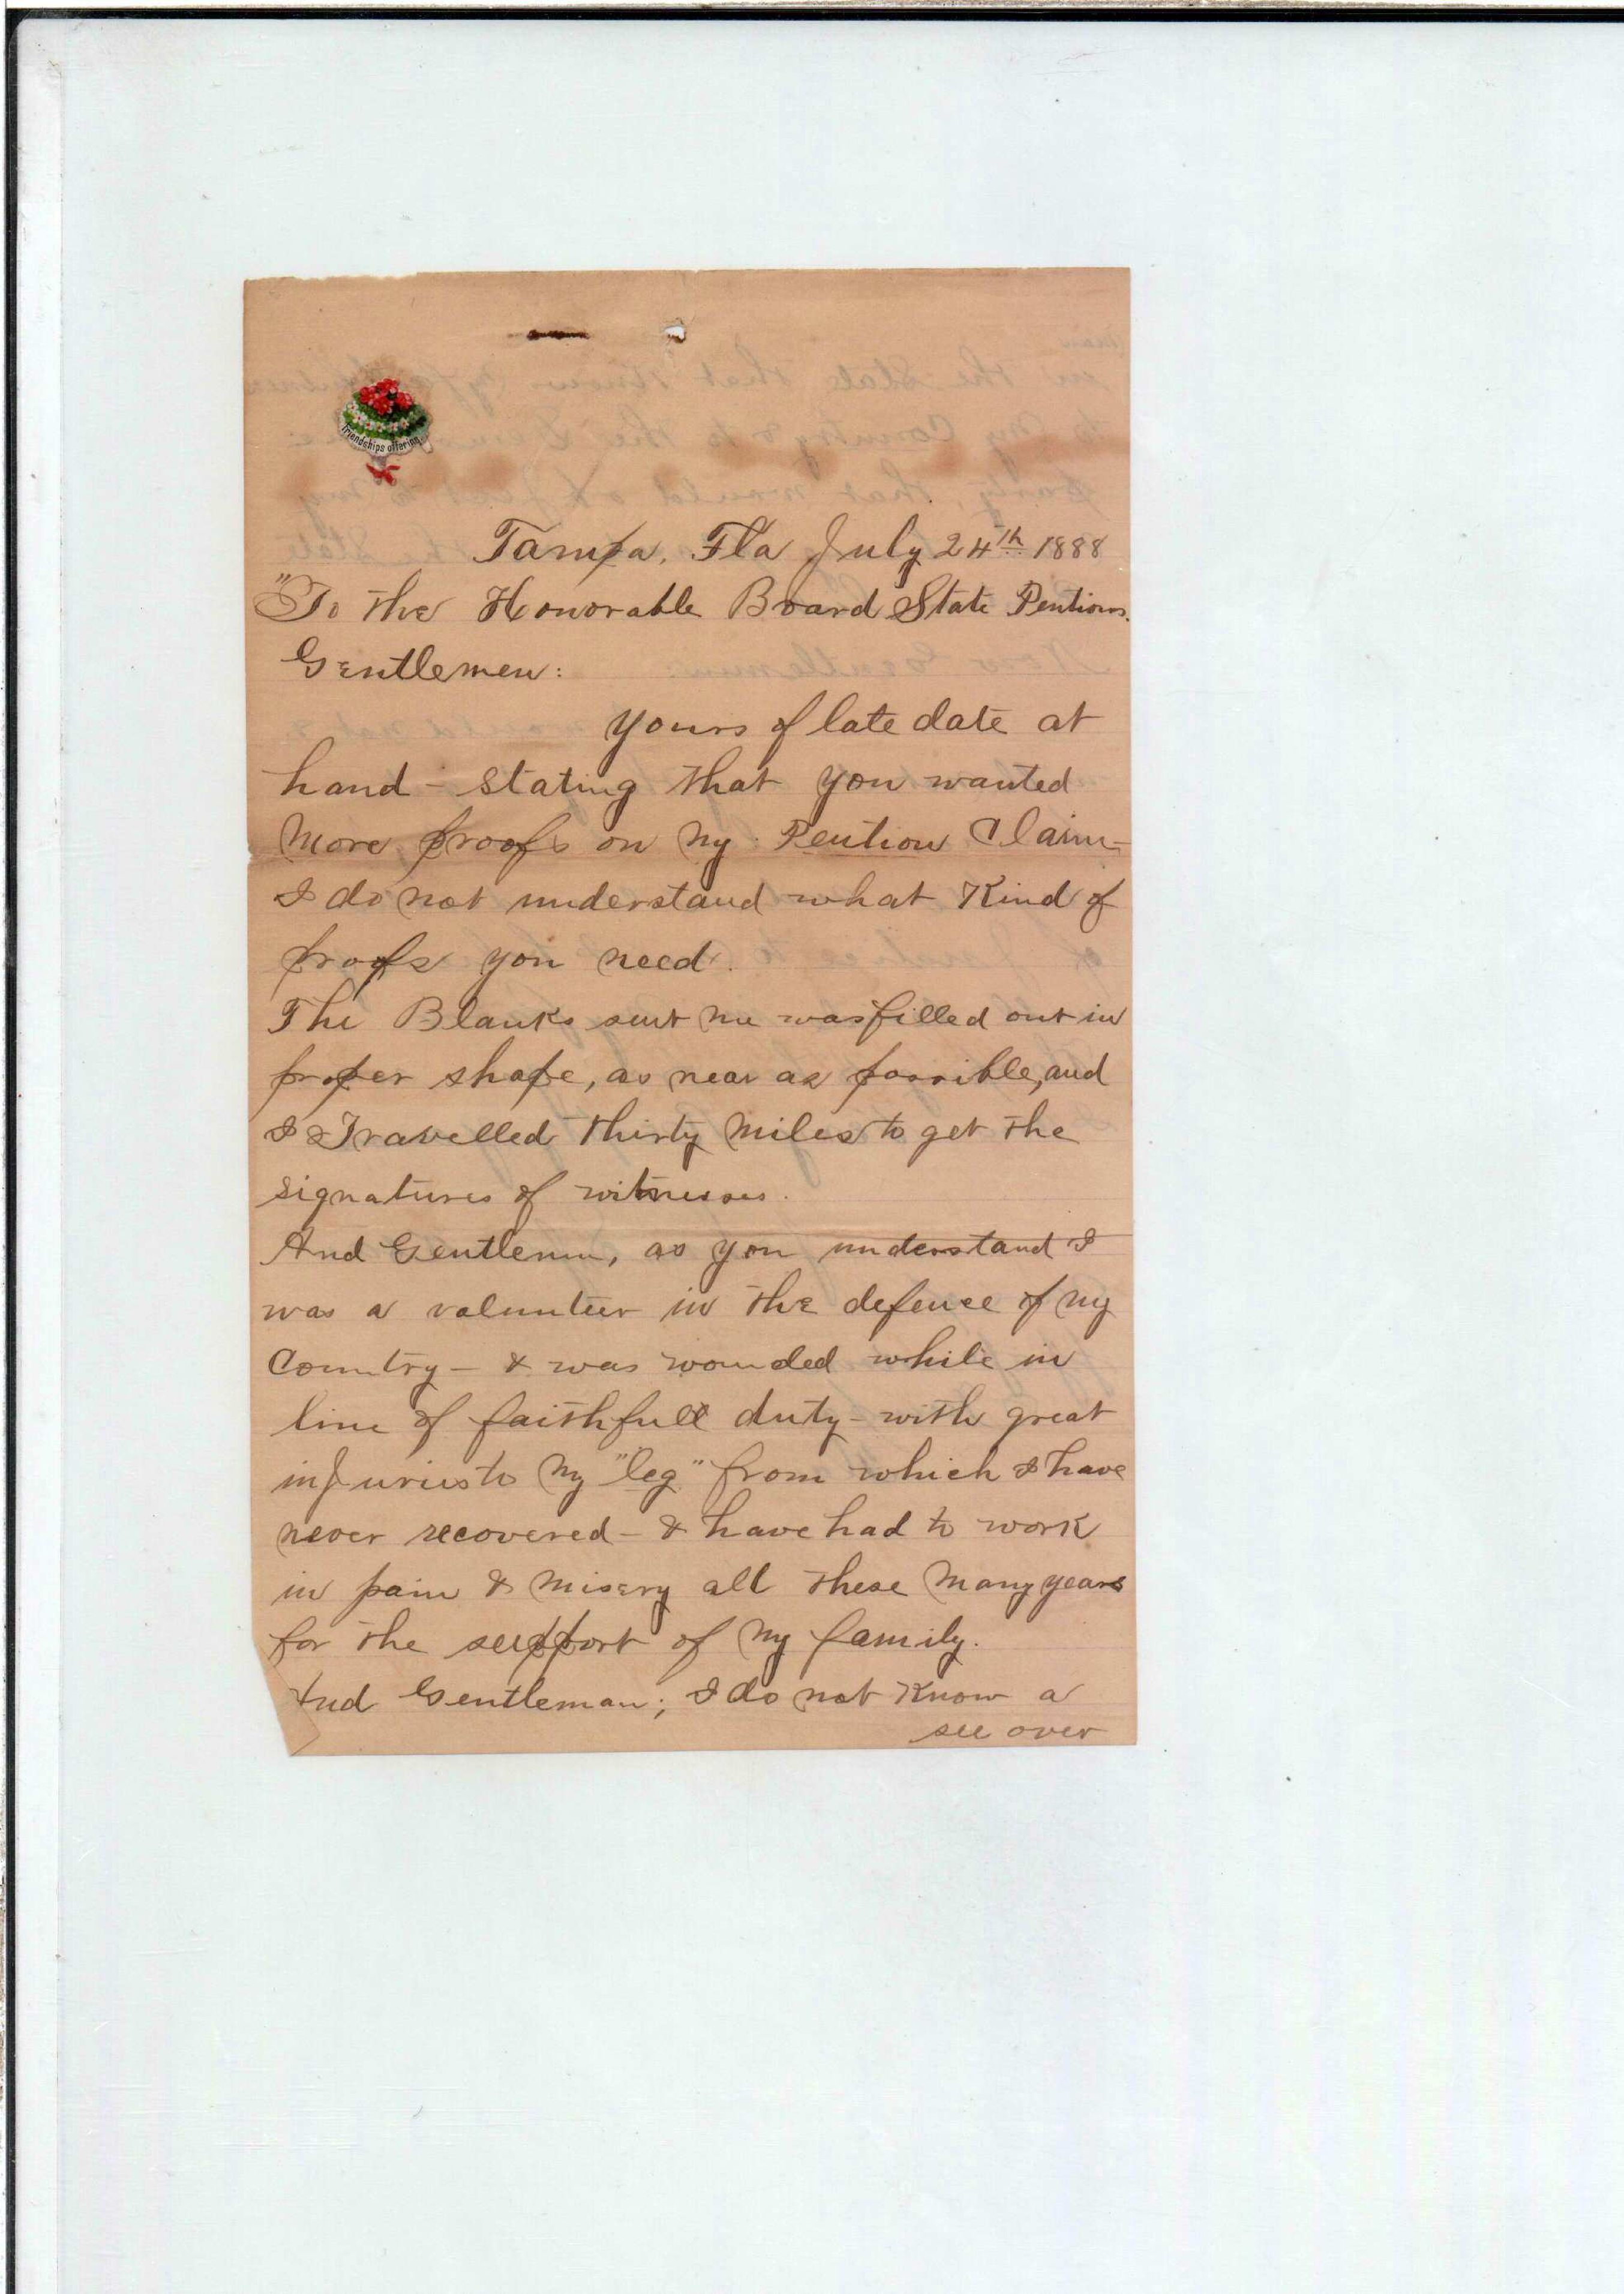 Friendships offering
Tampa, Fla July 24th 1888
"To the Honorable Board State Pentions.
Gentlemen:
yours of late date at
hand - stating that you wanted
More proofs on My Pention Claim-
I do not understand what Kind of
proofs you need.
The Blanks sent me was filled out in
proper shape, as near as possible, and
I Travelled thirty Miles to get the
signatures of witnesses.
And Gentlemen, as you understand I
was a volunteer in the defence of my
Country - & was wounded while in
line of faithfull duty - with great
inJuries to My "leg" from which I have
never recovered - & have had to work
in pain & Misery all these Many years
for the support of My family.
And Gentleman; I do not Know a
see over